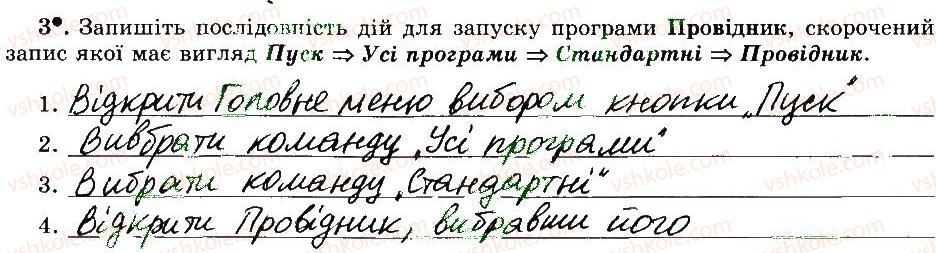 3•. Запишіть послідовність дій для запуску програми Провідник, скорочений
запис якої має вигляд Пуск ⇒ Усі програми ⇒ Стандартні ⇒ Провідник.
1. Відкрити Головне меню вибором кнопки „Пуск“
2. Вивбрати команду „Усі програми“
3. Вибрати команду „Стандартні“
4. Відкрити Провідник, вибравши його